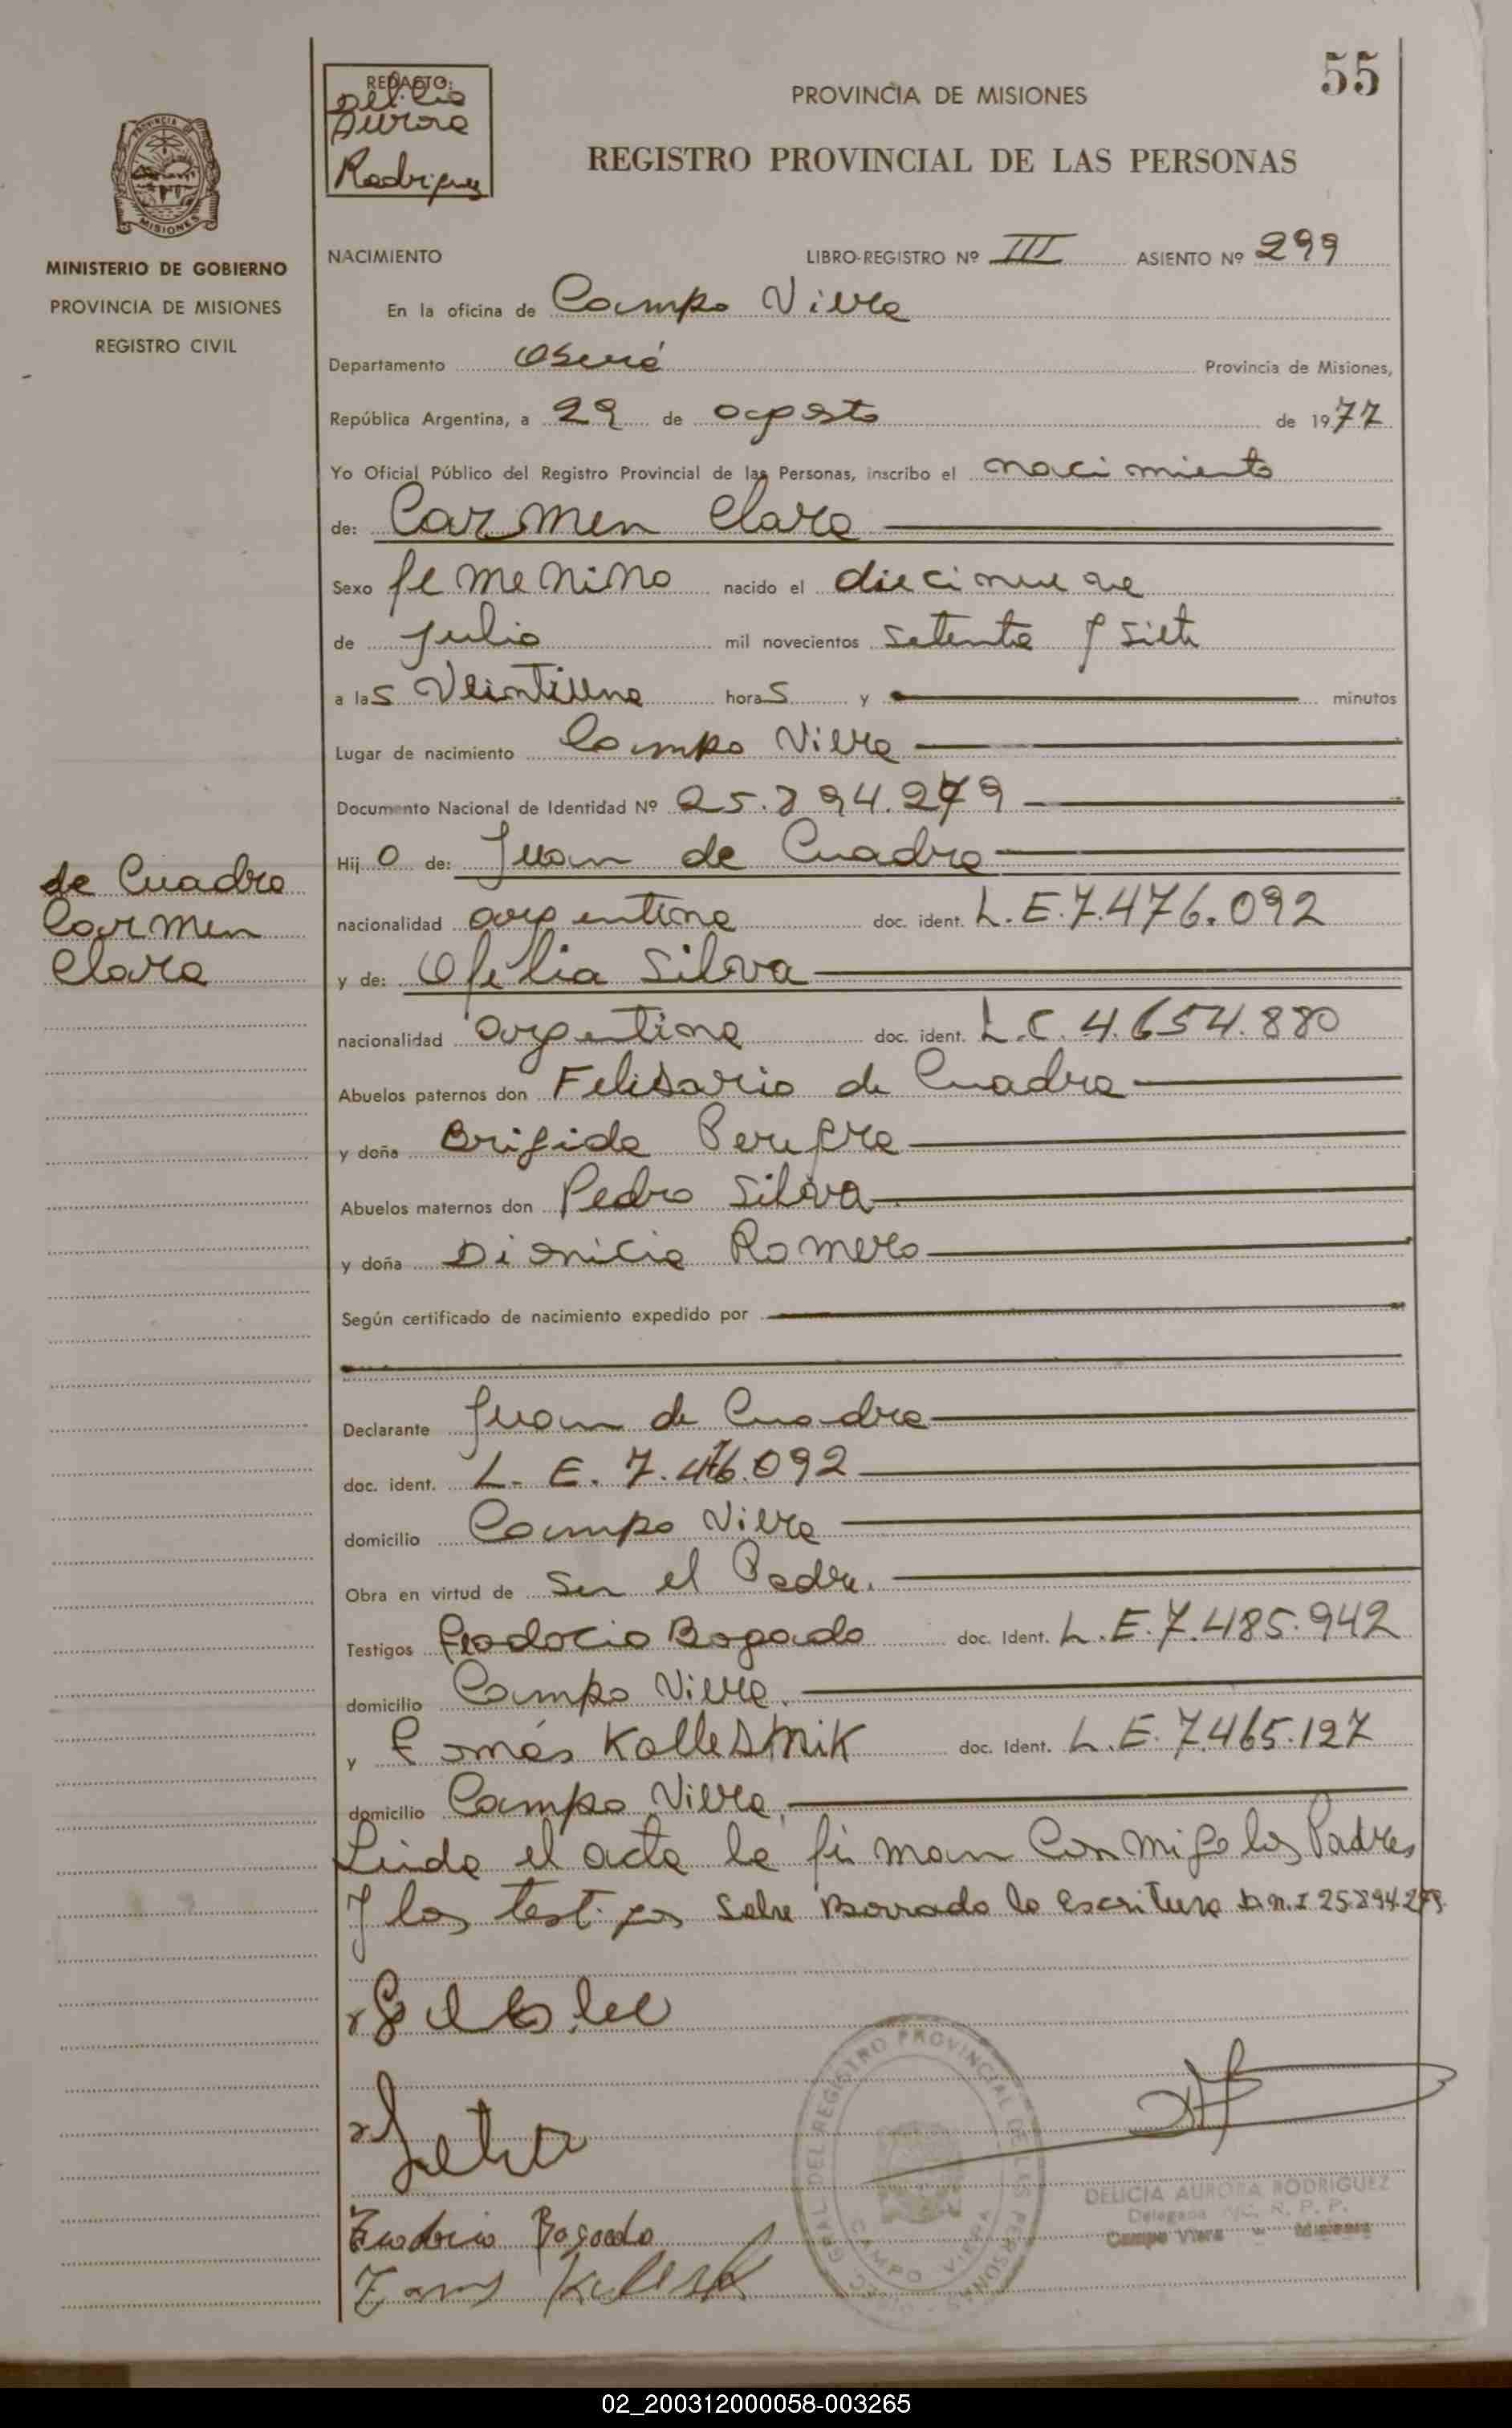 55
REDACTO:
Aurora
Rodriguez
PROVINCIA DE MISIONES
REGISTRO PROVINCIAL DE LAS PERSONAS
PROVINCIA DE MISIONES
MINISTERIO DE GOBIERNO
PROVINCIA DE MISIONES
REGISTRO CIVIL
NACIMIENTO LIBRO-REGISTRO Nº III ASIENTO Nº 299
En la oficina de Campo Viera
Departamento Oberá Provincia de Misiones,
República Argentina, a 29 de agosto de 1977
Yo Oficial Público del Registro Provincial de las Personas, inscribo el nacimiento
de: Carmen Clara
Sexo femenino nacido el diecinueve
de julio mil novecientos setenta y siete
a las Veintiuna horas y minutos
Lugar de nacimiento Campo Viera
Documento Nacional de Identidad Nº 25.894.279
Hij o de: Juan de Cuadra
de Cuadra
Carmen
Clara
nacionalidad argentina doc. ident. L.E.7.476.092
y de: Ofelia Silva
nacionalidad argentina doc. ident. L.C.4.654.880
Abuelos paternos don Felisario de Cuadra
y doña Brigida Pereyra
Abuelos maternos don Pedro Silva
y doña Dionicia Romero
Según certificado de nacimiento expedido por
Declarante Juan de Cuadra
doc. ident. L. E. 7.476.092
domicilio Campo Viera
Obra en virtud de ser el Padre.
Testigos Teodocio Bogado doc. Ident. L.E.7.485.942
domicilio Campo Viera.
y Tomás Kollesnik doc. Ident. L.E.7.465.127
domicilio Campo Viera,
Leida el acta la firman Conmigo los Padres
y los testigos sobre Borrado lo escritura D.N.I 25.894.279.
Bogado
REGISTRO PROVINCIAL DE LAS PERSONAS
CAMPO VIERA
DELICIA AURORA RODRIGUEZ
Delegada R. P. P.
Campo Viera - Misiones
02_200312000058-003265